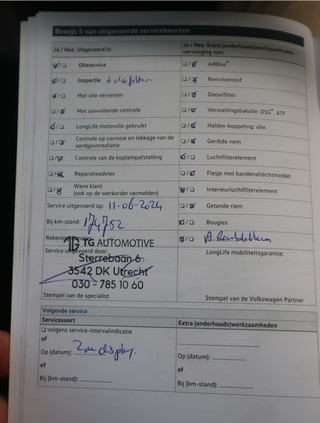 Bewijs 5 van uitgevoerde servicebeurten
Ja / Nee. Uitgevoerd is:
Olieservice
Inspectie
Met olie verversen
Met aanvullende controle
LongLife motorolie gebruikt
Controle op corrosie en lekkage van de
aardgasinstallatie
Controle van de koplampafstelling
Reparatieadvies
Wens klant
(ook op de werkorder vermelden)
Service uitgevoerd op: 11-06-2024
Bij km-stand: 174752
Service uitgevoerd door:
TG AUTOMOTIVE
Sterrebaan 6
3542 DK Utrecht
030 - 785 10 60
Stempel van de specialist
Ja / Nee. Extra (onderhouds)werkzaamheden
vervanging van:
AdBlue®
Remvloeistof
Dieselfilter
Versnellingsbakolie: DSG®, ATF
Haldex-koppeling: olie
Geribde riem
Luchtfilterelement
Flesje met bandenafdichtmiddel
Interieurluchtfilterelement
Getande riem
Bougies
LongLife mobiliteitsgarantie:
Stempel van de Volkswagen Partner
Volgende service
Servicesoort
volgens service-intervalindicatie
of
Op (datum): Zie display.
of
Bij (km-stand):
Extra (onderhouds)werkzaamheden
Op (datum):
of
Bij (km-stand):